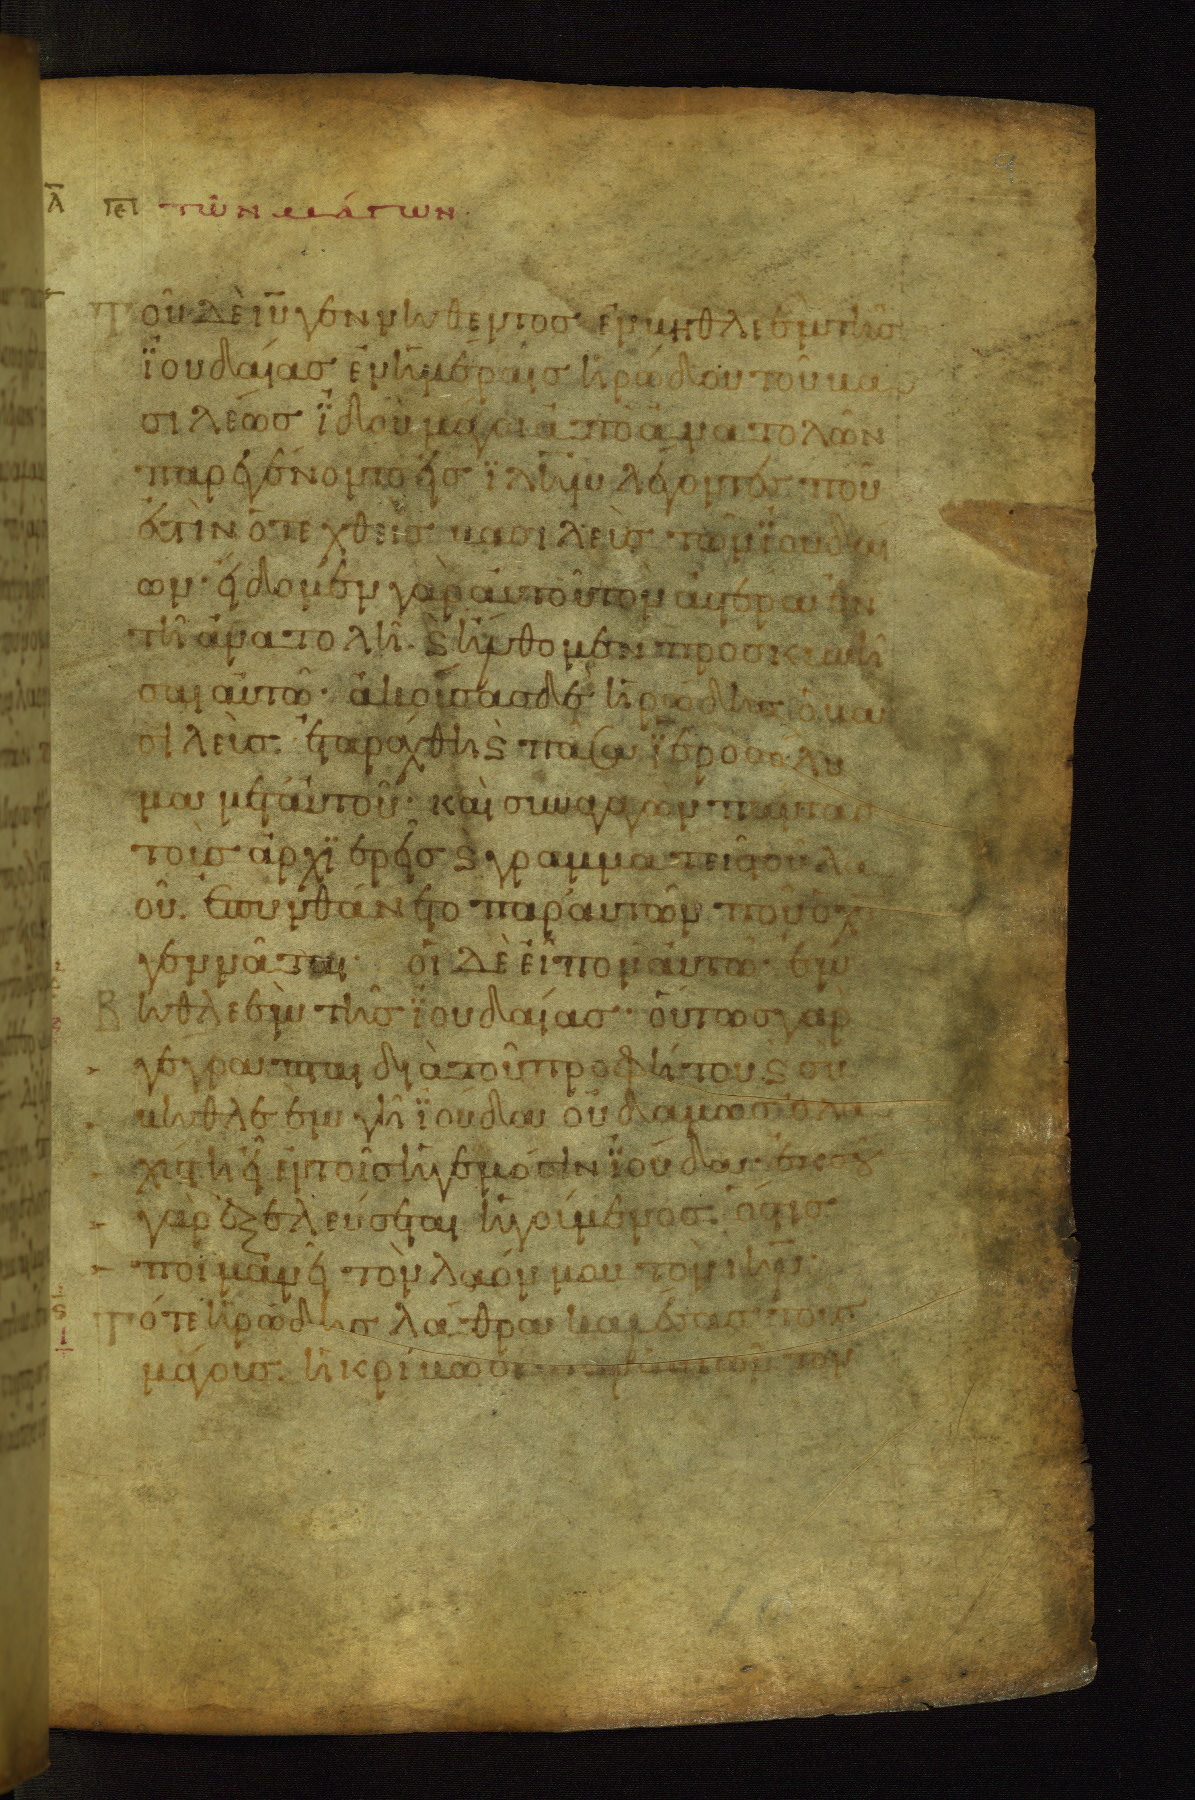 Α̅ περι τῶν μάγων
Τοῦ δὲ ιῦ γεννηθέντος ἐν βηθλεὲμ τῆς
ϊουδαίας ἐν ἡμέραις ἡρώδου τοῦ βα
σιλέως ϊδοὺ μάγοι ἀπὸ ἀνατολῶν
παρεγένοντο εἰς ϊλημ λέγοντες ποῦ
ἐστὶν ὁ τεχθεὶς βασιλεὺς τῶν ϊουδαί
ων· εἴδομεν γὰρ αὐτοῦ τὸν ἀστέρα ἐν
τῆ ἀνατολῆ· ϛ ἤλθομεν προσκυνῆ
σαι αὐτῶ· ἀκούσας δὲ ἡρώδης ὁ βα
σιλεὺς ἐταράχθη ϛ πᾶσα ϊεροσόλυ
μα μετ' αὐτοῦ· καὶ συναγαγὼν πάντας
τοὺς ἀρχϊερεῖς ϛ γραμματεῖς τοῦ λα
οῦ· ἐπυνθάνετο παρ' αὐτῶν ποῦ ὁ χς
γεννᾶται· οἱ δὲ εἶπον αὐτῶ· ἐν
Βηθλεὲμ τῆς ϊουδαίας· οὕτως γὰρ
γέγραπται διὰ τοῦ προφήτου ϛ σὺ
βηθλεὲμ γῆ ϊούδα οὐδαμῶς ἐλα
χίστη εἶ ἐν τοῖς ἡγεμόσιν ϊούδα· ἐκ σοῦ
γὰρ ἐξελεύσεται ἡγούμενος· ὅστις
ποιμανεῖ τὸν λαόν μου τὸν ιηλ·
Τότε ἡρώδης λάθρα καλέσας τοὺς
μάγους· ἠκρίβωσε παρ' αὐτῶν τὸν